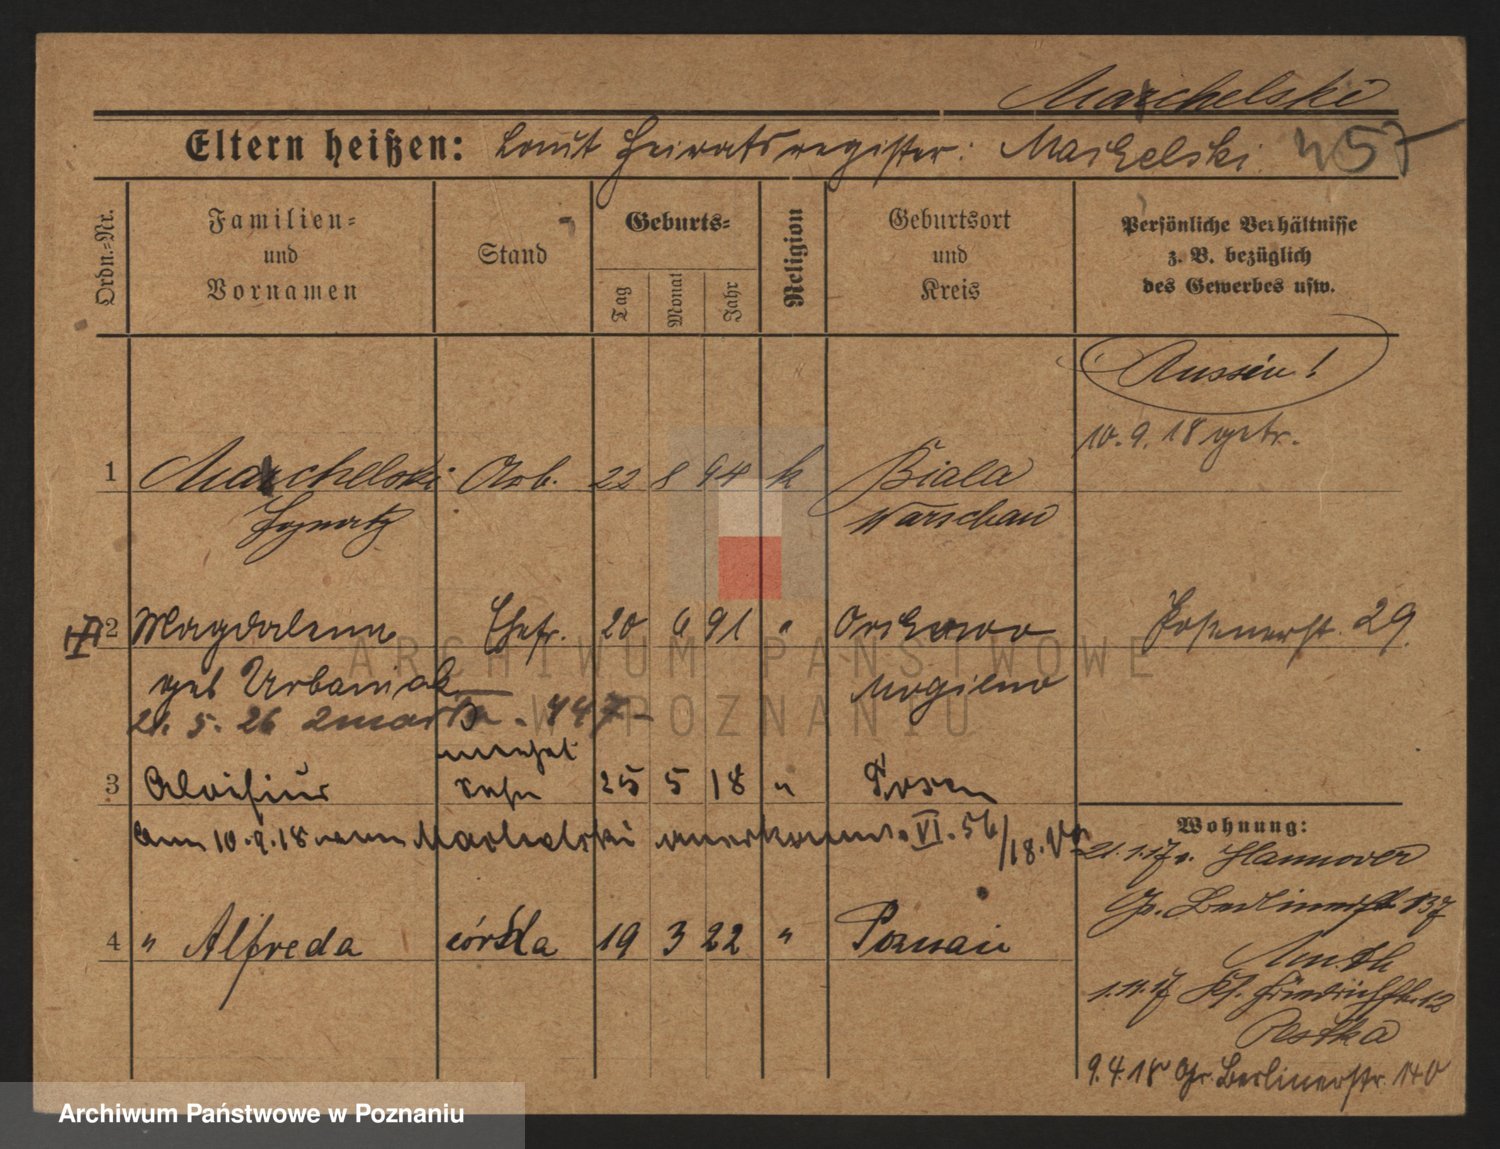 Marchelski
Eltern heißen: Laut Heiratsregister: Marchelski 457
Ordn.-Nr.
Familien-
und
Vornamen
Stand
Geburts-
Tag
Monat
Jahr
Religion
Geburtsort
und
Kreis
Persönliche Verhältnisse
z. B. bezüglich
des Gewerbes usw.
Russin!
10.9.18 getr.
1 Marchelski Arb. 22 8 94 k Biala
Ignatz Warschau
2 Magdalena Ehefr. 20 6 91 " Orchowo Posenerst. 29
geb Urbaniak Mogilno
21. 5. 26 447
unehel
3 Aloisius Sohn 25 5 18 " Posen
am 10.9.18 vom Marchelski anerkannt. VI. 56/18.
Wohnung:
21.1.17 v. Hannover
Gr. Berlinerstr 137
4 " Alfreda córka 19 3 22 " Poznań
1.11.17 Friedrichstr. 12
9.4.18 Gr. Berlinerstr. 140
ARCHIWUM PAŃSTWOWE
W POZNANIU
Archiwum Państwowe w Poznaniu